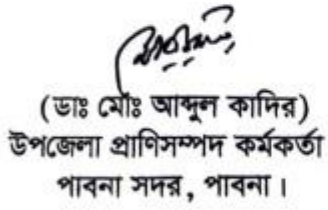 (ডাঃ মোঃ আব্দুল কাদির)
উপজেলা প্রাণিসম্পদ কর্মকর্তা
পাবনা সদর, পাবনা।